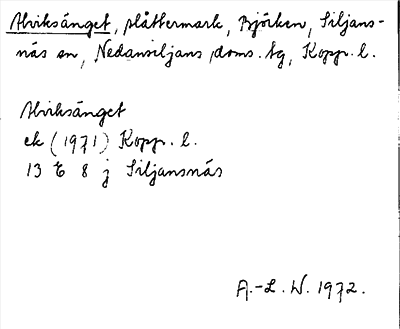 Alviksänget, slåttermark, Björken, Siljans-
näs sn, Nedansiljans doms. tg, Kopp. l.
Alviksänget
ek (1971) Kopp. l.
13 E 8 j Siljansnäs
A.-L. W. 1972.